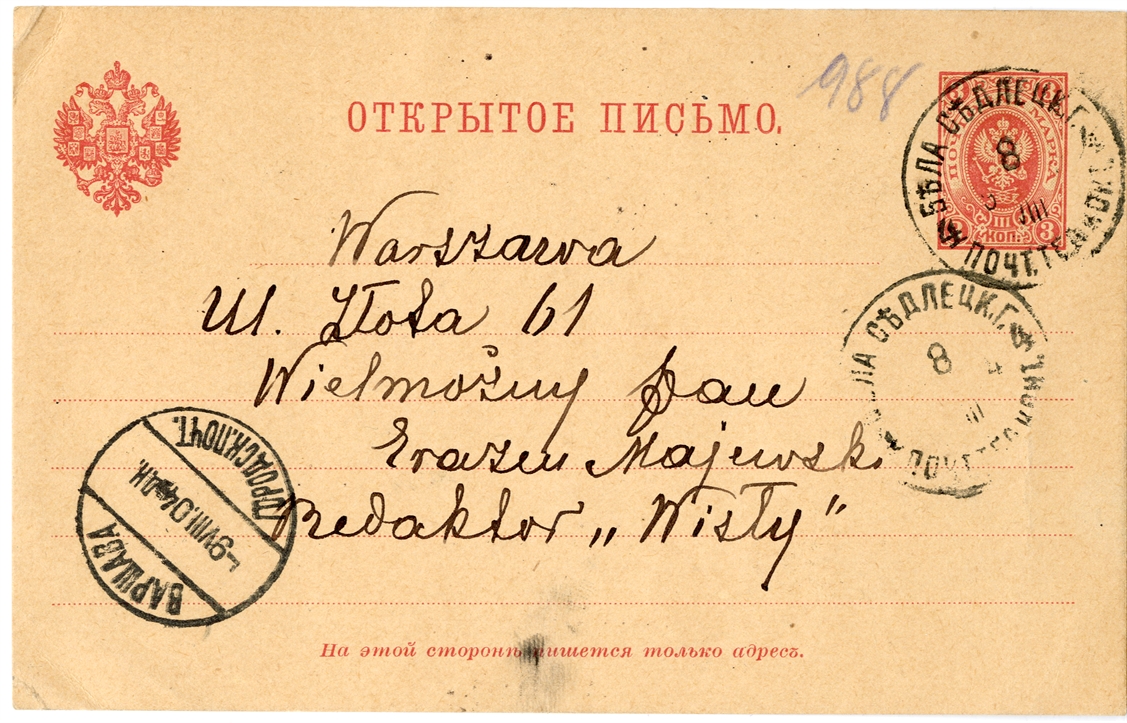 988
ОТКРЫТОЕ ПИСЬМО.
ПОЧТОВАЯ МАРКА
III
КОП.
3 3
БѢЛА СѢДЛЕЦК. Г.
8
VIII
ПОЧТ. ТЕЛ. КОНТ.
Warszawa
Ul. Złota 61
Wielmożny Pan
Erazm Majewski
Redaktor „Wisły”
СѢДЛЕЦК. Г.
8
ГОРОДСК. ПОЧТ.
-9 VIII. 04
ВАРШАВА
На этой сторонѣ пишется только адресъ.